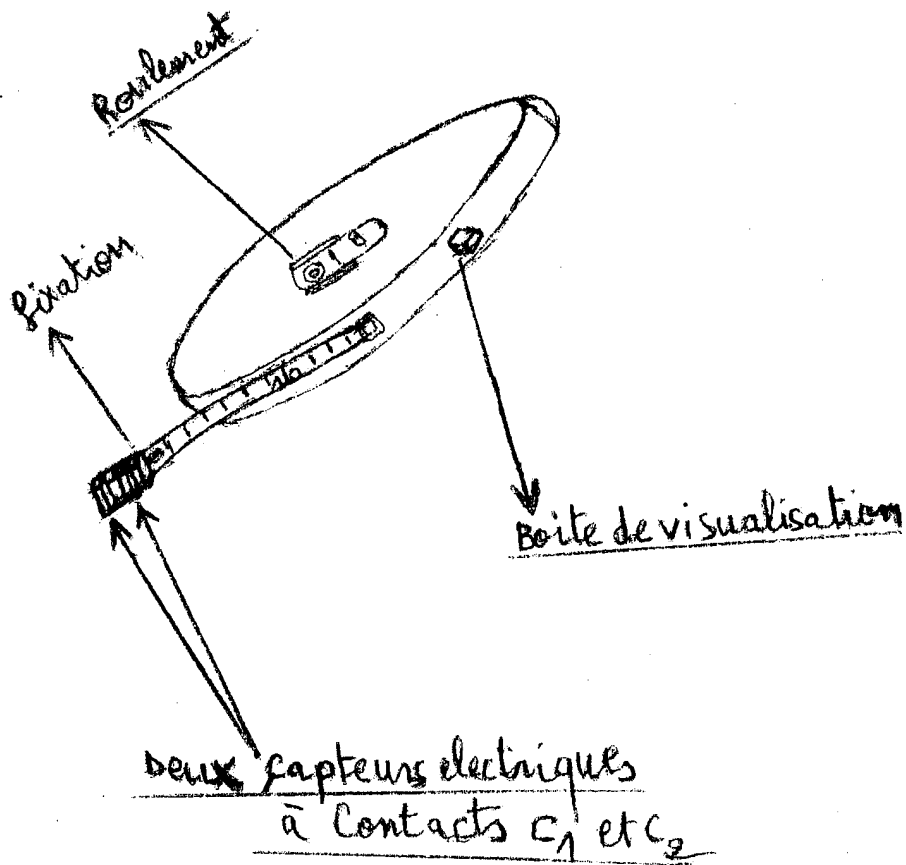 Roulement
fixation
Boite de visualisation
Deux capteurs electriques
à Contacts C₁ et C₂